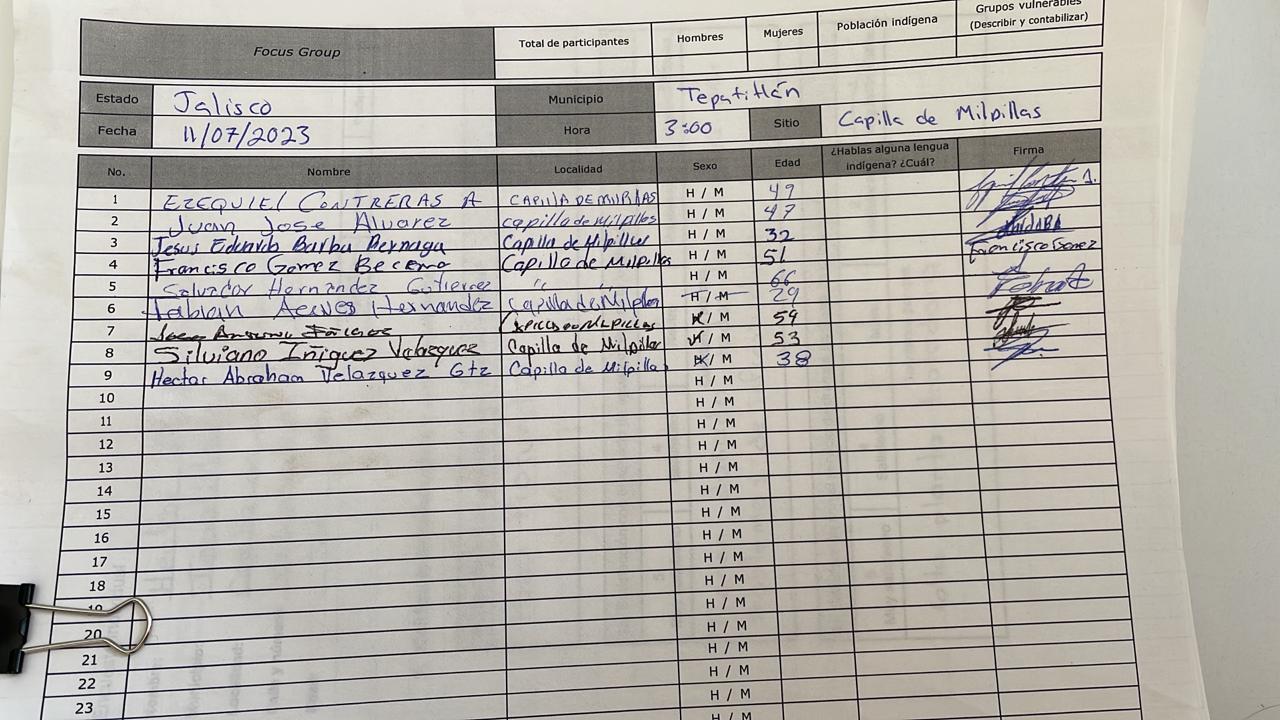 Focus Group Total de participantes Hombres Mujeres Población indígena Grupos vulnerables (Describir y contabilizar)
Estado Jalisco Municipio Tepatitlán
Fecha 11/07/2023 Hora 3:00 Sitio Capilla de Milpillas
No. Nombre Localidad Sexo Edad ¿Hablas alguna lengua indígena? ¿Cuál? Firma
1 EZEQUIEL CONTRERAS A CAPILLA DE MILPILLAS H / M 49
2 Juan Jose Alvarez capilla de milpillas H / M 47
3 Jesus Eduardo Barba Bernaga Capilla de Milpillas H / M 32
4 Francisco Gomez Becerra Capilla de Milpillas H / M 51 Francisco Gomez
5 Salvador Hernandez Gutierrez " " H / M 66
6 Fabian Hernandez Capilla de Milpillas H / M 29
7 H / M 59
8 Silviano Iñiguez Capilla de Milpillas H / M 53
9 Hector Abraham Velazquez Gtz Capilla de Milpillas H / M 38
10 H / M
11 H / M
12 H / M
13 H / M
14 H / M
15 H / M
16 H / M
17 H / M
18 H / M
19 H / M
20 H / M
21 H / M
22 H / M
23 H / M